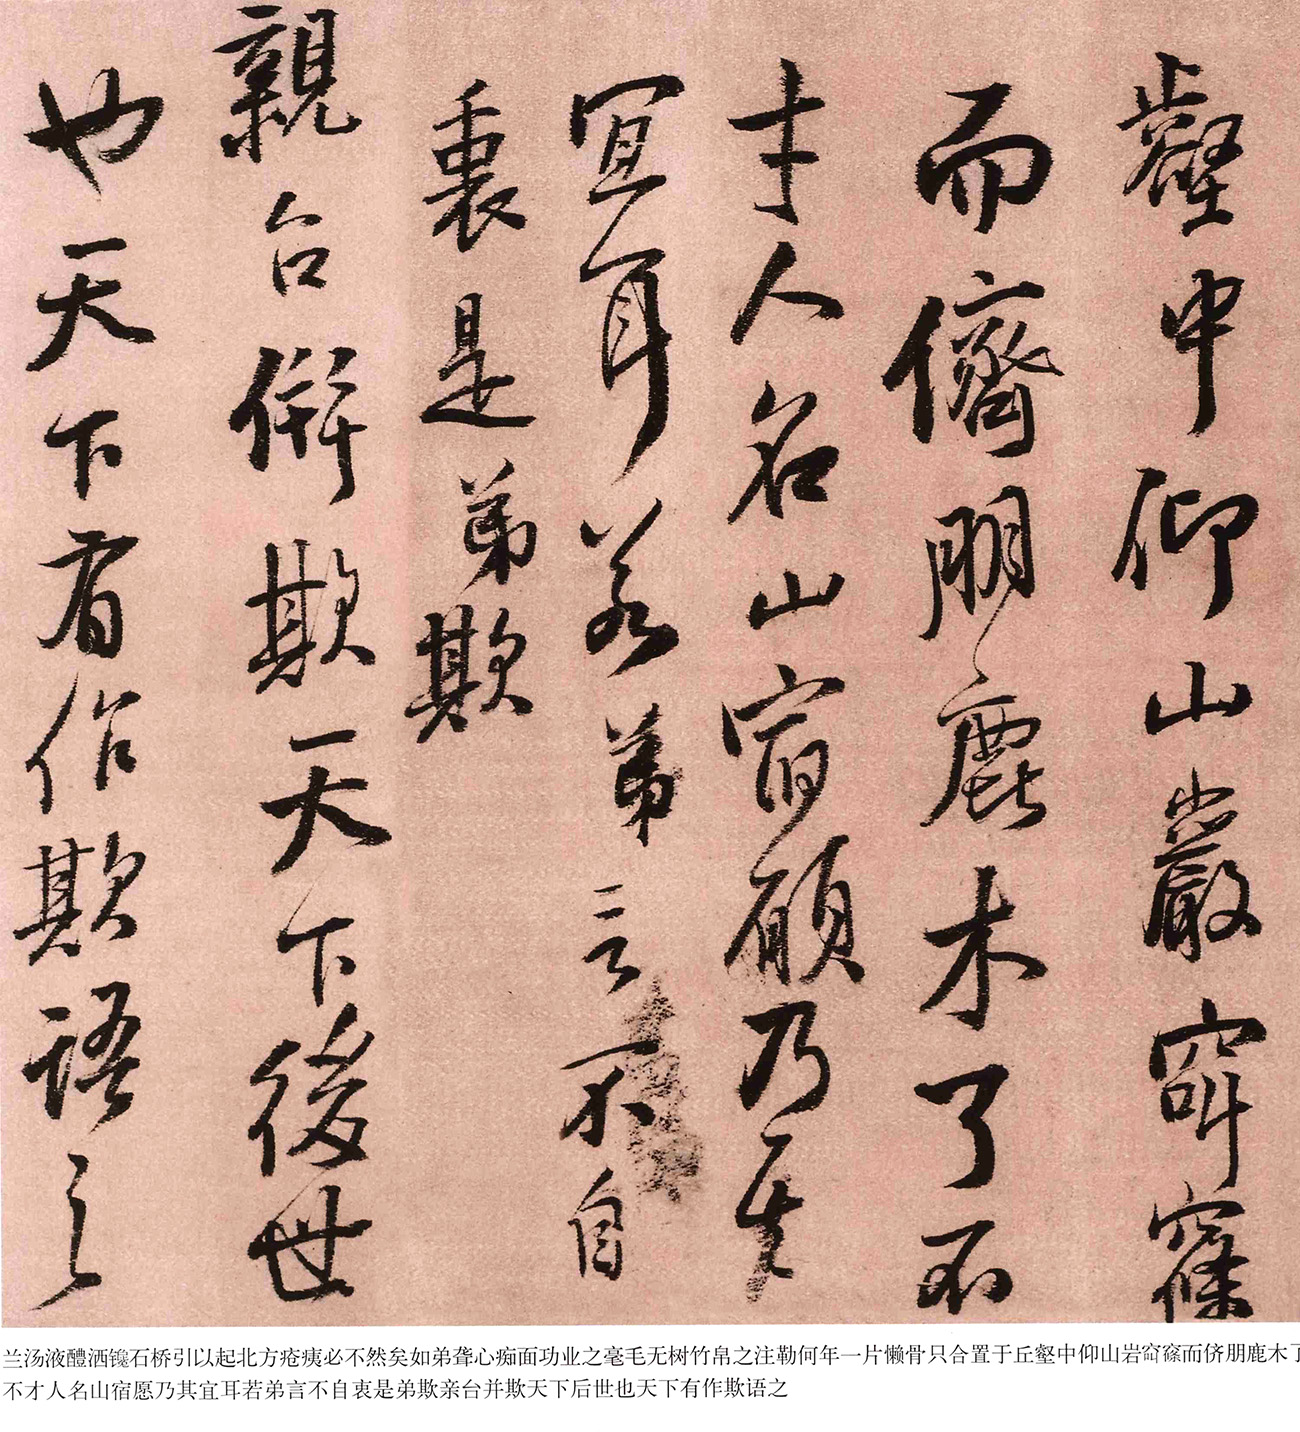 壑中仰山巖窅窱
而儕朋鹿木了不
才人名山宿願乃其
宜耳若弟言不自
衷是弟欺
親台併欺天下後世
也天下有作欺語之
兰汤液醴洒镵石桥引以起北方疮痍必不然矣如弟聋心痴面功业之毫毛无树竹帛之注勒何年一片懒骨只合置于丘壑中仰山岩窅窱而侪朋鹿木了
不才人名山宿愿乃其宜耳若弟言不自衷是弟欺亲台并欺天下后世也天下有作欺语之